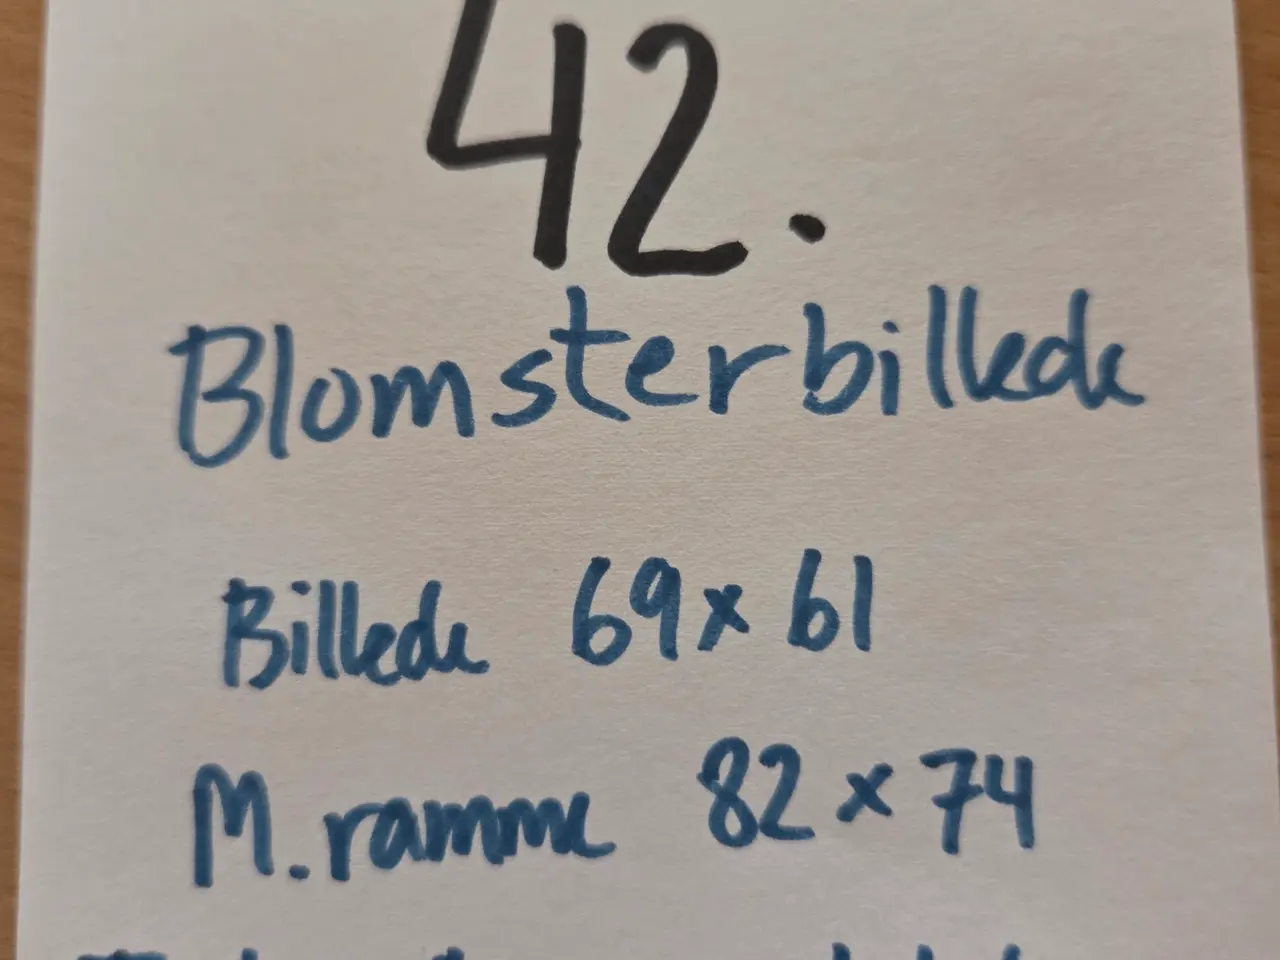 42.
Blomsterbillede
Billede 69 x 61
M. ramme 82 x 74